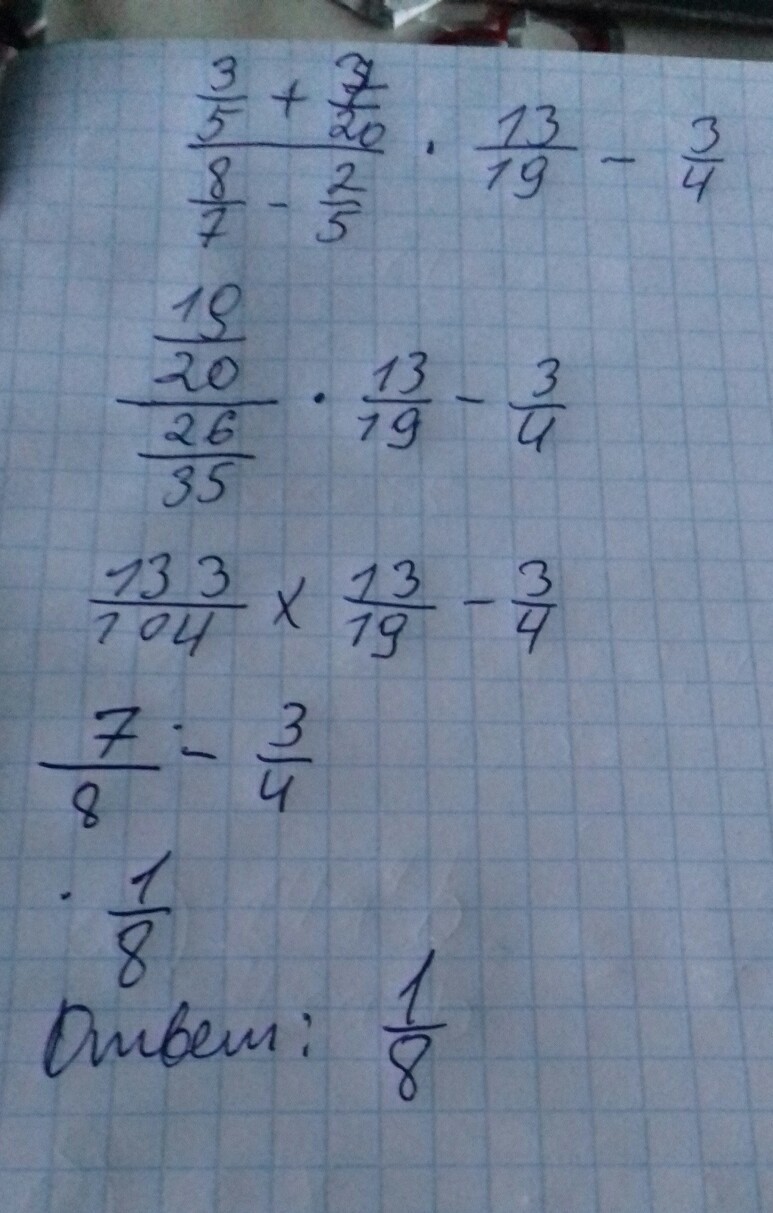 (3/5 + 7/20)/(8/7 - 2/5) · 13/19 - 3/4
(19/20)/(26/35) · 13/19 - 3/4
133/104 x 13/19 - 3/4
7/8 - 3/4
1/8
Ответ: 1/8